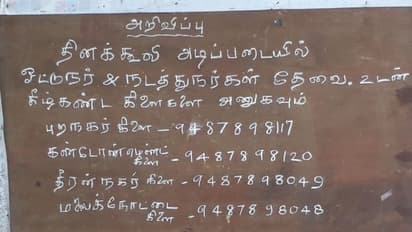 அறிவிப்பு
தினக்கூலி அடிப்படையில்
ஓட்டுநர் & நடத்துநர்கள் தேவை. உடன்
கீழ்கண்ட கிளைகளை அணுகவும்
புறநகர் கிளை - 9487898117
கன்டோன்மெண்ட் கிளை - 9487898120
தீரன் நகர் கிளை - 9487898049
மலைக்கோட்டை கிளை - 9487898048